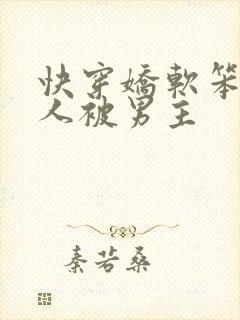 快穿嬌軟笨
人被男主
秦若桑